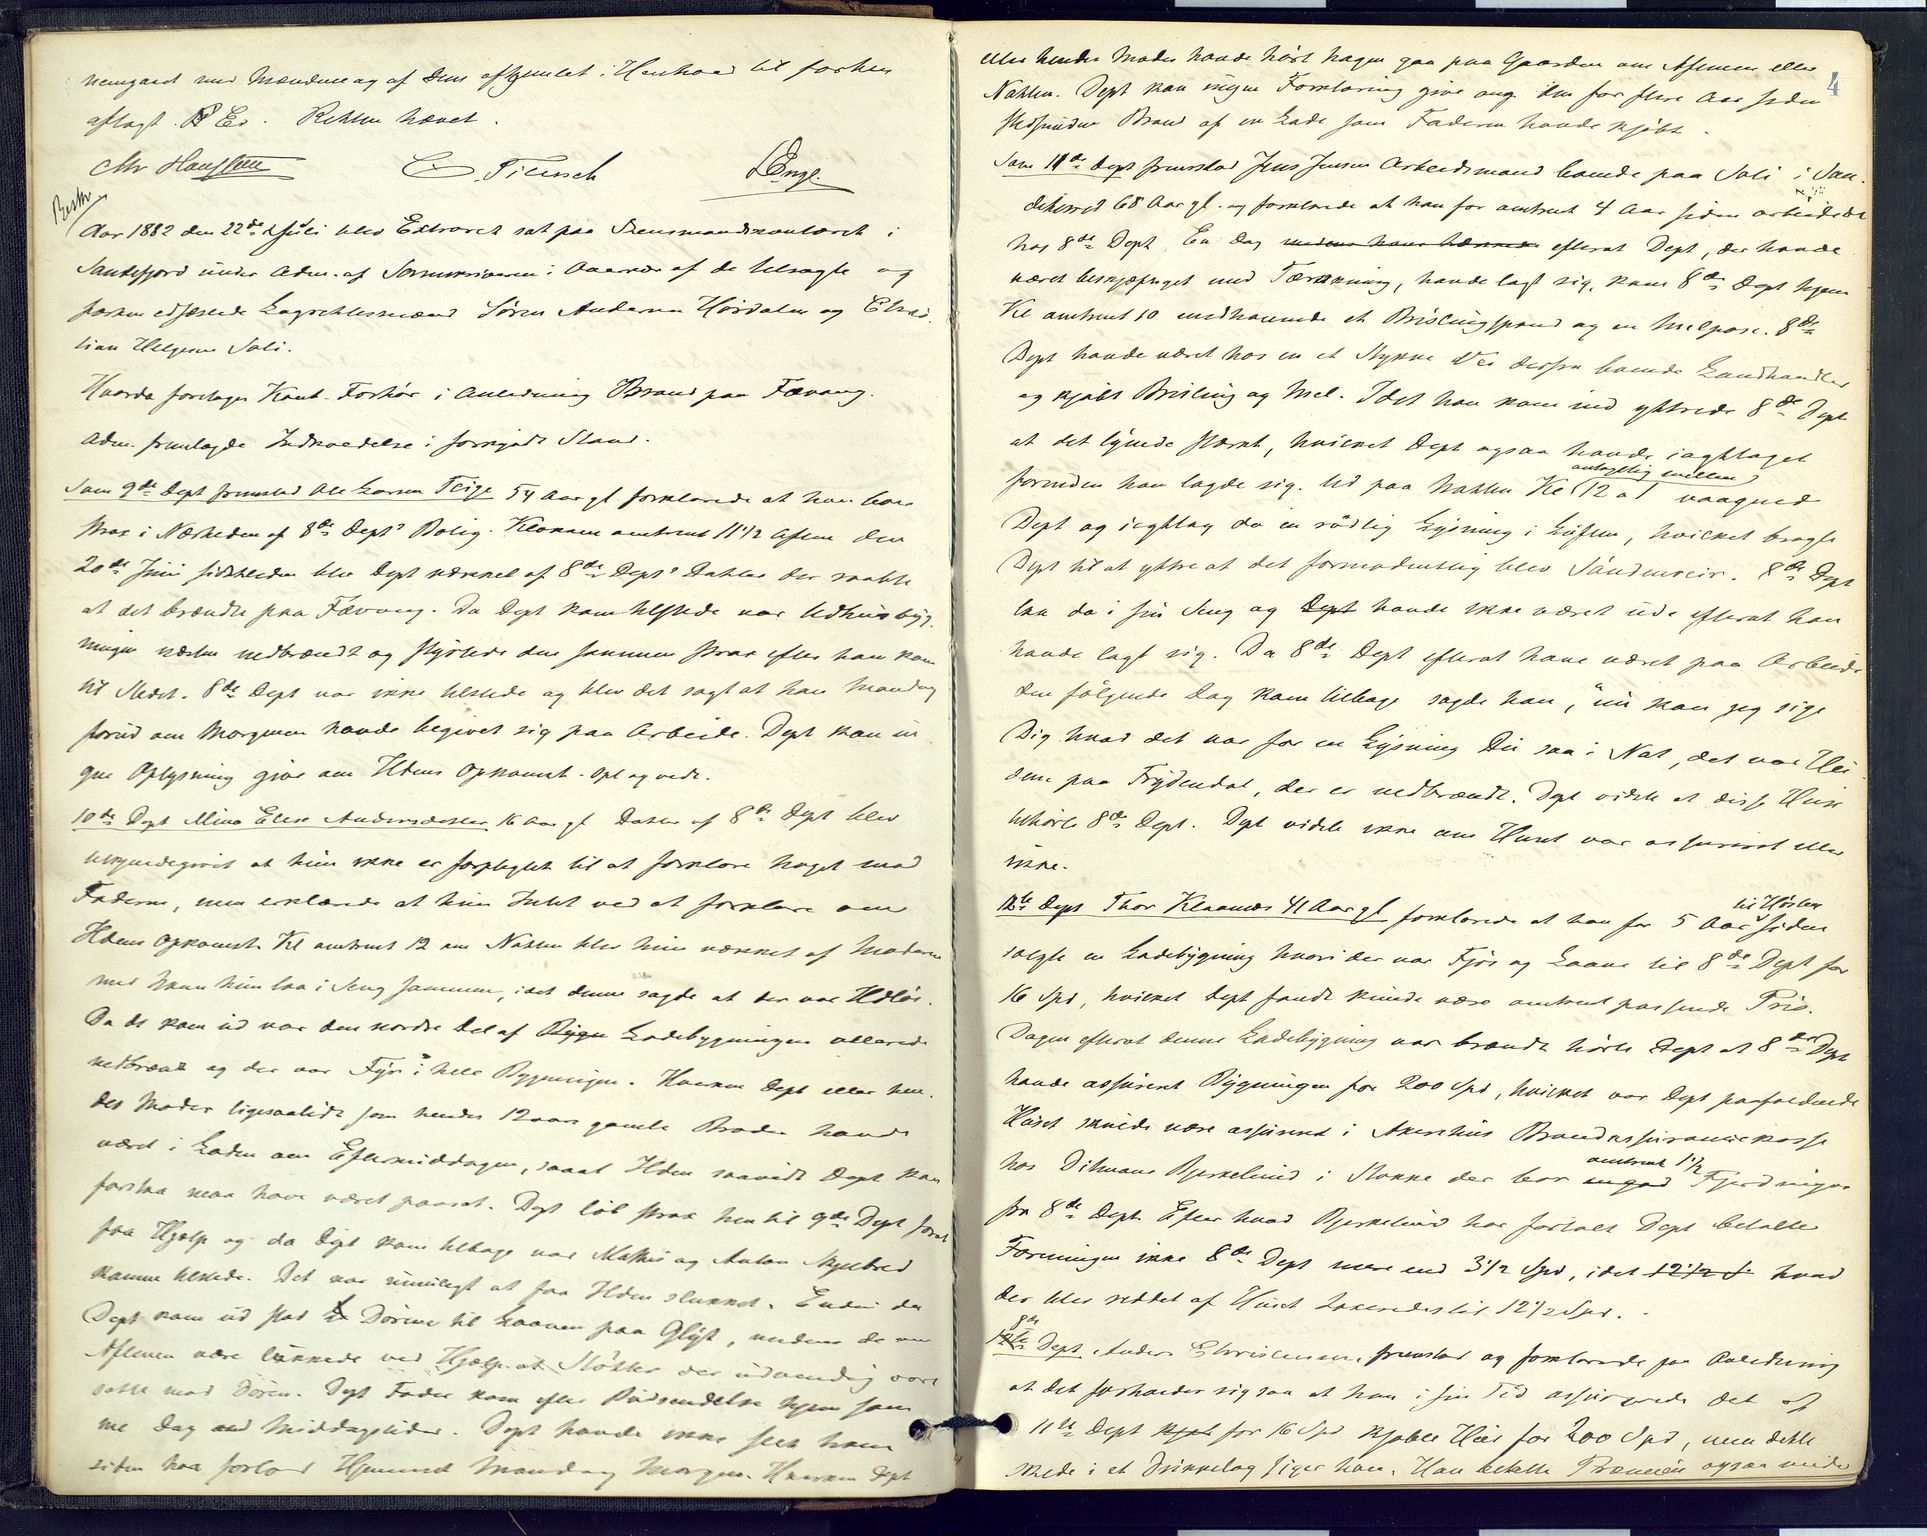 nemgaaet med Mændene og af dem afhjemlet i Henhold til forhen
aflagt Ed. Retten hævet.
Chr Hanssen C. Tiersch LEngl.
Aar 1882 den 22de Juli blev Extraret sat paa Lensmandskontoret i
Sandefjord under Adm. af Sorenskriveren i Overvær af de tilsagte og
forhen edfæstede Lagrettesmænd Søren Andersen Hørdalen og Chris-
tian Helgesen Soli.
Hvorda foretoges Kont. Forhør i Anledning Brand paa Fævang.
Adm. fremlagde Indkaldelse i forkyndt Stand.
Som 9de Dept fremstod Ole Larsen Teige 54 Aar gl forklarede at han bor
strax i Nærheden af 8de Depts Bolig. Klokken omtrent 11½ Aften den
20de Juni sidstleden blev Dept vækket af 8de Depts Datter der raabte
at det brændte paa Fævang. Da Dept kom tilstede var Udhusbyg-
ningen næsten nedbrændt og styrtede den sammen strax efter han kom
til Stedet. 8de Dept var ikke tilstede og blev det sagt at han Mandag
forud om Morgenen havde begivet sig paa Arbeide. Dept kan in-
gen Oplysning give om Ildens Opkomst. Opl og vedt.
10de Dept Mina Elise Andersdatter 16 Aar gl Datter af 8de Dept blev
tilkjendegivet at hun ikke er forpligtet til at forklare Noget mod
Faderen, men erklærede at hun Intet ved at forklare om
Ildens Opkomst. Kl omtrent 12 om Natten blev hun vækket af Moderen
med hvem hun laa i Seng sammen, idet denne sagde at der var Ildløs.
Da de kom ud var den nordre Del af Bygn Ladebygningen allerede
nedbrændt og der var Fyr i hele Bygningen. Hverken Dept eller hen-
des Moder ligesaalidt som hendes 12 aar gamle Broder havde
været i Laden om Eftermiddagen, saaat Ilden saavidt Dept kan
forstaa maa have været paasat. Dept løb strax hen til 9de Dept forat
faa Hjælp og da Dept kom tilbage var Mathis og Anton
komne tilstede. Det var umuligt at faa Ilden slukket. Endnu da
Dept kom ud stod Dørene til Laaven paa Gløt, medens de om
Aftenen være lukkede ved Hjælp af Støtter der udvendig vare
satte mod Døren. Dept Fader kom efter Budsendelse hjem sam-
me Dag ved Middagstider. Dept havde ikke seet ham
siden han forlod Hjemmet Mandag Morgen. Hverken Dept
4
eller hendes Moder havde hørt nogen gaa paa Gaarden om Aftenen eller
Natten. Dept kan ingen Forklaring give ang. den for flere Aar siden
stedfundne Brand af en Lade som Faderen havde kjøbt.
Som 11de Dept fremstod Jens Jensen Arbeidsmand boende paa Soli i San-
deherred 68 Aar gl. og forklarede at han for omtrent 4 Aar siden arbeidede
hos 8de Dept. En Dag efterat Dept, der havde
været beskjæftiget med Tærskning, havde lagt sig, kom 8de Dept hjem
Kl omtrent 10 medhavende et Brislingspand og en Melpose. 8de
Dept havde været hos en et Stykke Vei derfra boende Landhandler
og kjøbt Brisling og Mel. Idet han kom ind yttrede 8de Dept
at det lynede stærkt, hvilket Dept ogsaa havde iagttaget
forinden han lagde sig. Ud paa Natten Kl antagelig mellem 12 a 1 vaagned
Dept og iagttog da en rødlig Lysning i Luften, hvilket bragte
Dept til at yttre at det formodentlig blev Søndenveir. 8de Dept
laa da i sin Seng og Dept havde ikke været ude efterat han
havde lagt sig. Da 8de Dept efterat have været paa Arbeide
den følgende Dag kom tilbage sagde han, "nu kan jeg sige
Dig hvad det var for en Lysning Du saa i Nat, det var Hu-
sene paa Frydendal, der er nedbrændt. Dept vidste at disse Huse
tilhørte 8de Dept. Dept vidste ikke om Huset var assureret eller
ikke.
12te Dept Thor Klaames 41 Aar gl forklarede at han for 5 Aar til Høsten siden
solgte en Ladebygning hvori der var Fjøs og Laave til 8de Dept for
16 Spd, hvilket Dept fandt kunde være omtrent passende Pris.
Dagen efterat denne Ladebygning var brændt hørte Dept at 8de Dept
havde assureret Bygningen for 200 Spd, hvilket var Dept paafaldende
Huset skulde være assureret i Akershus Brandassurancekasse
hos Ditmann Bjerkelund i Stokke der bor omtrent 1½ Fjerdinger
fra 8de Dept. Efter hvad Bjerkelund har fortalt Dept betalte
Foreningen ikke 8de Dept mere end 3½ Spd, idet 12½ S hvad
der blev reddet af Huset takseredes til 12½ Spd.
8de Dept Anders Christensen fremstod og forklarede paa Anledning
at det forholder sig saa at han i sin Tid assurerede det af
11te Dept kjøb for 16 Spd kjøbte Hus for 200 Spd, men dette
skede i et Drikkelag siger han. Han betalte Præmien ogsaa med